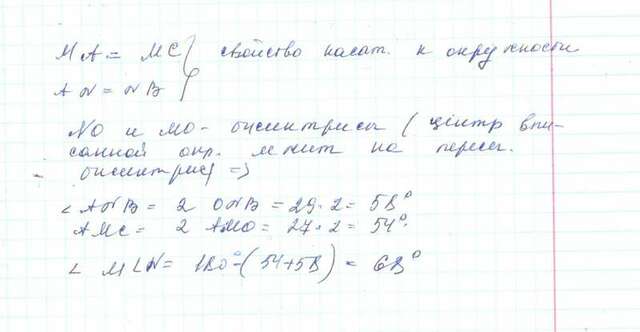 MA = MC } свойство касат. к окружности
AN = NB
NO и MO - биссектрисы ( центр впи-
санной окр. лежит на перес.
биссектрис) =>
∠ ANB = 2 ONB = 29·2 = 58°
AMC = 2 AMO = 27·2 = 54°.
∠ MLN = 180°-(54+58) = 68°